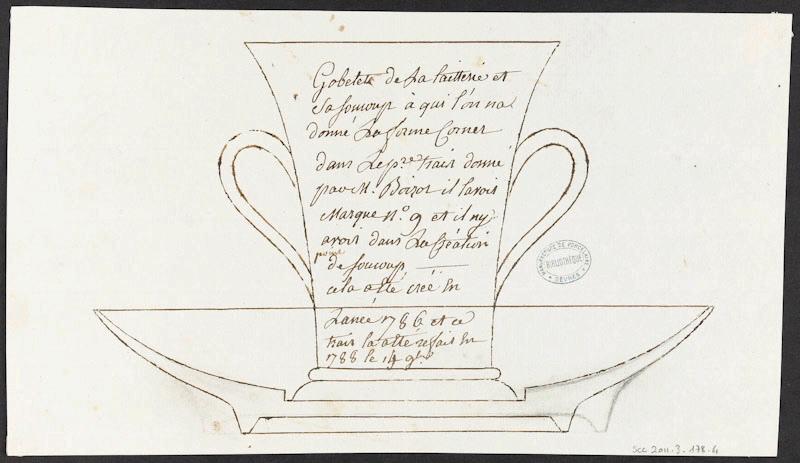 Gobelete de La laitterie et
Sa soucoup à qui l'on na
donné La forme Cornet
dans Le pr.e trait donné
par M. Boizot il lavoit
Marqué N.o 9 et il ny
avoit dans La Création
point
de soucoup
cela a été créé en
L'anée 1786 et ce
trait la a été refait En
1788 le 14 9bre
MANUFACTURE DE PORCELAINE
BIBLIOTHÈQUE
SÈVRES
Scc 2011-3-178-4